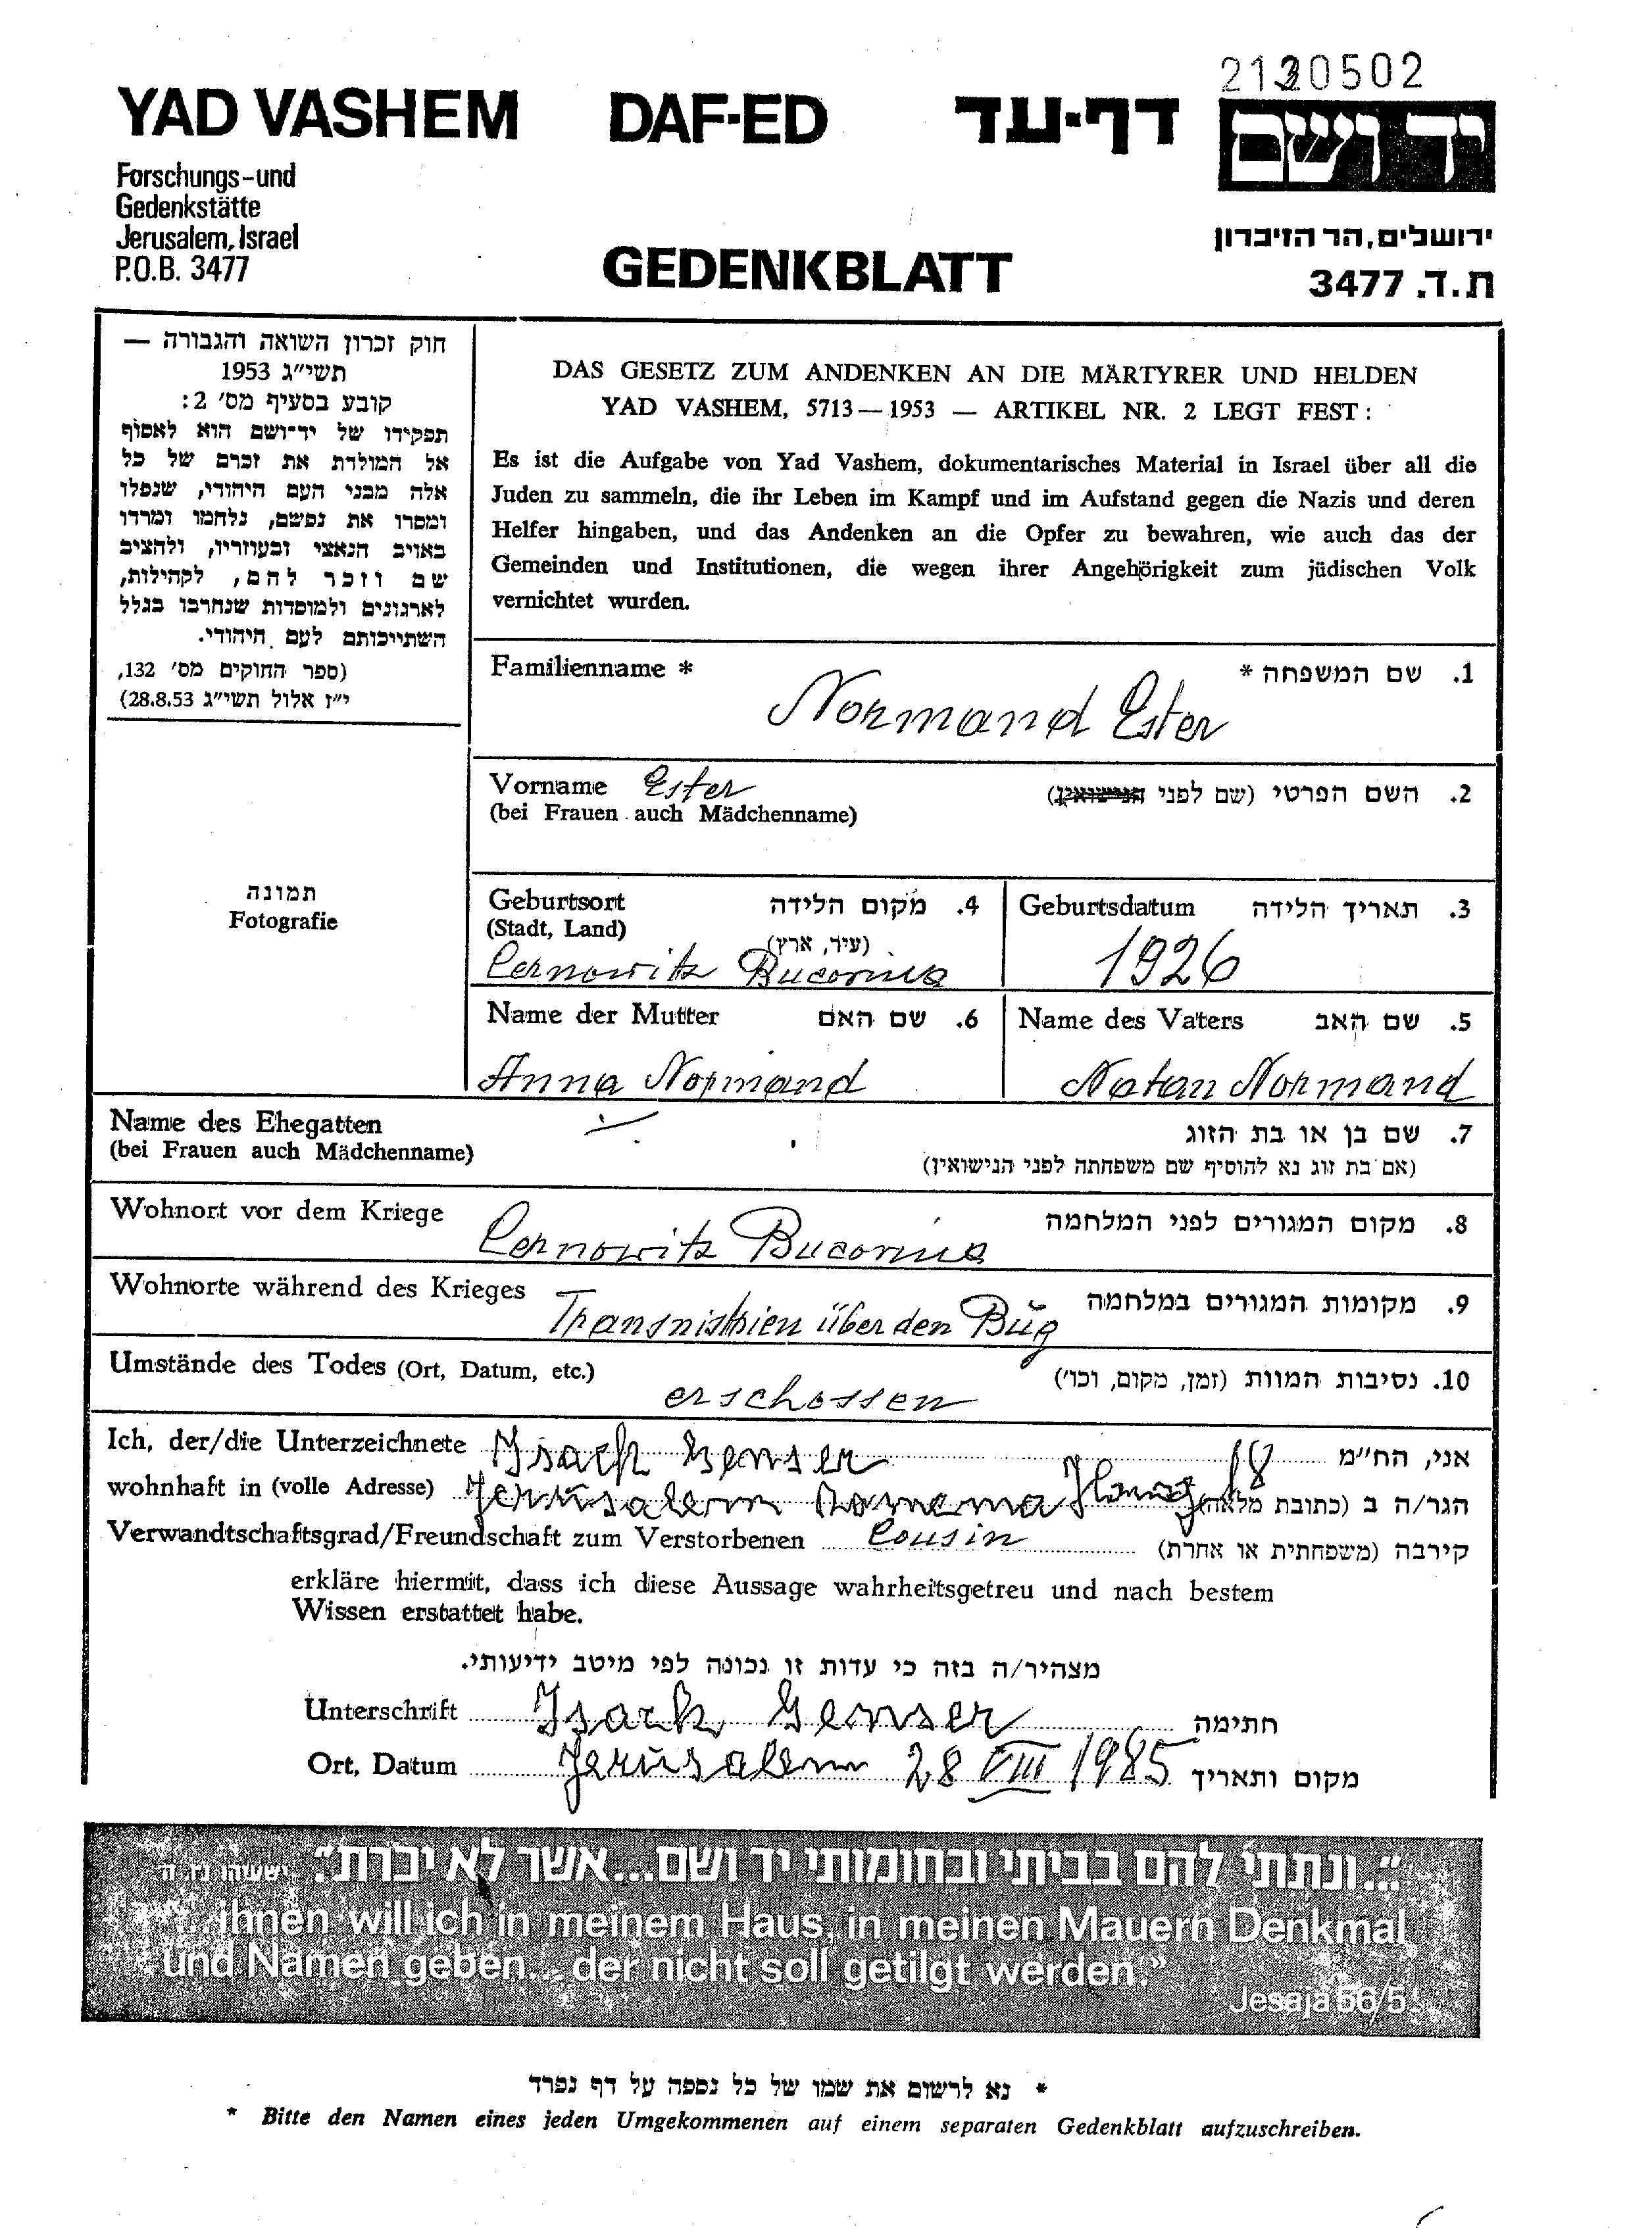 2130502
YAD VASHEM DAF-ED דף-עד יד ושם
Forschungs-und
Gedenkstätte
Jerusalem, Israel
P.O.B. 3477
GEDENKBLATT
ירושלים, הר הזיכרון
ת.ד. 3477
חוק זכרון השואה והגבורה —
תשי"ג 1953
קובע בסעיף מס' 2:
תפקידו של יד-ושם הוא לאסוף
אל המולדת את זכרם של כל
אלה מבני העם היהודי, שנפלו
ומסרו את נפשם, נלחמו ומרדו
באויב הנאצי ובעוזריו, ולהציב
שם וזכר להם, לקהילות,
לארגונים ולמוסדות שנחרבו בגלל
השתייכותם לעם היהודי.
(ספר החוקים מס' 132,
י"ז אלול תשי"ג 28.8.53)
DAS GESETZ ZUM ANDENKEN AN DIE MÄRTYRER UND HELDEN
YAD VASHEM, 5713—1953 — ARTIKEL NR. 2 LEGT FEST:
Es ist die Aufgabe von Yad Vashem, dokumentarisches Material in Israel über all die
Juden zu sammeln, die ihr Leben im Kampf und im Aufstand gegen die Nazis und deren
Helfer hingaben, und das Andenken an die Opfer zu bewahren, wie auch das der
Gemeinden und Institutionen, die wegen ihrer Angehörigkeit zum jüdischen Volk
vernichtet wurden.
Familienname * 1. שם המשפחה *
Normand Ester
Vorname Ester 2. השם הפרטי (שם לפני הנישואין)
(bei Frauen auch Mädchenname)
תמונה
Fotografie
Geburtsort 4. מקום הלידה
(Stadt, Land) (עיר, ארץ)
Cernowitz Bucovina
Geburtsdatum 3. תאריך הלידה
1926
Name der Mutter 6. שם האם
Anna Normand
Name des Vaters 5. שם האב
Natan Normand
Name des Ehegatten 7. שם בן או בת הזוג
(bei Frauen auch Mädchenname) (אם בת זוג נא להוסיף שם משפחתה לפני הנישואין)
Wohnort vor dem Kriege 8. מקום המגורים לפני המלחמה
Cernowitz Bucovina
Wohnorte während des Krieges 9. מקומות המגורים במלחמה
Transnistrien über den Bug
Umstände des Todes (Ort, Datum, etc.) 10. נסיבות המוות (זמן, מקום, וכו')
erschossen
Ich, der/die Unterzeichnete Isack Genser אני, הח"מ
wohnhaft in (volle Adresse) Jerusalem Romema 18 הגר/ה ב (כתובת מלאה)
Verwandtschaftsgrad/Freundschaft zum Verstorbenen Cousin קירבה (משפחתית או אחרת)
erkläre hiermit, dass ich diese Aussage wahrheitsgetreu und nach bestem
Wissen erstattet habe.
מצהיר/ה בזה כי עדות זו נכונה לפי מיטב ידיעותי.
Unterschrift Isack Genser חתימה
Ort, Datum Jerusalem 28 VIII 1985 מקום ותאריך
"...ונתתי להם בביתי ובחומותי יד ושם...אשר לא יכרת". ישעיהו נו, ה
"...ihnen will ich in meinem Haus, in meinen Mauern Denkmal
und Namen geben... der nicht soll getilgt werden."
Jesaja 56/5
* נא לרשום את שמו של כל נספה על דף נפרד
* Bitte den Namen eines jeden Umgekommenen auf einem separaten Gedenkblatt aufzuschreiben.